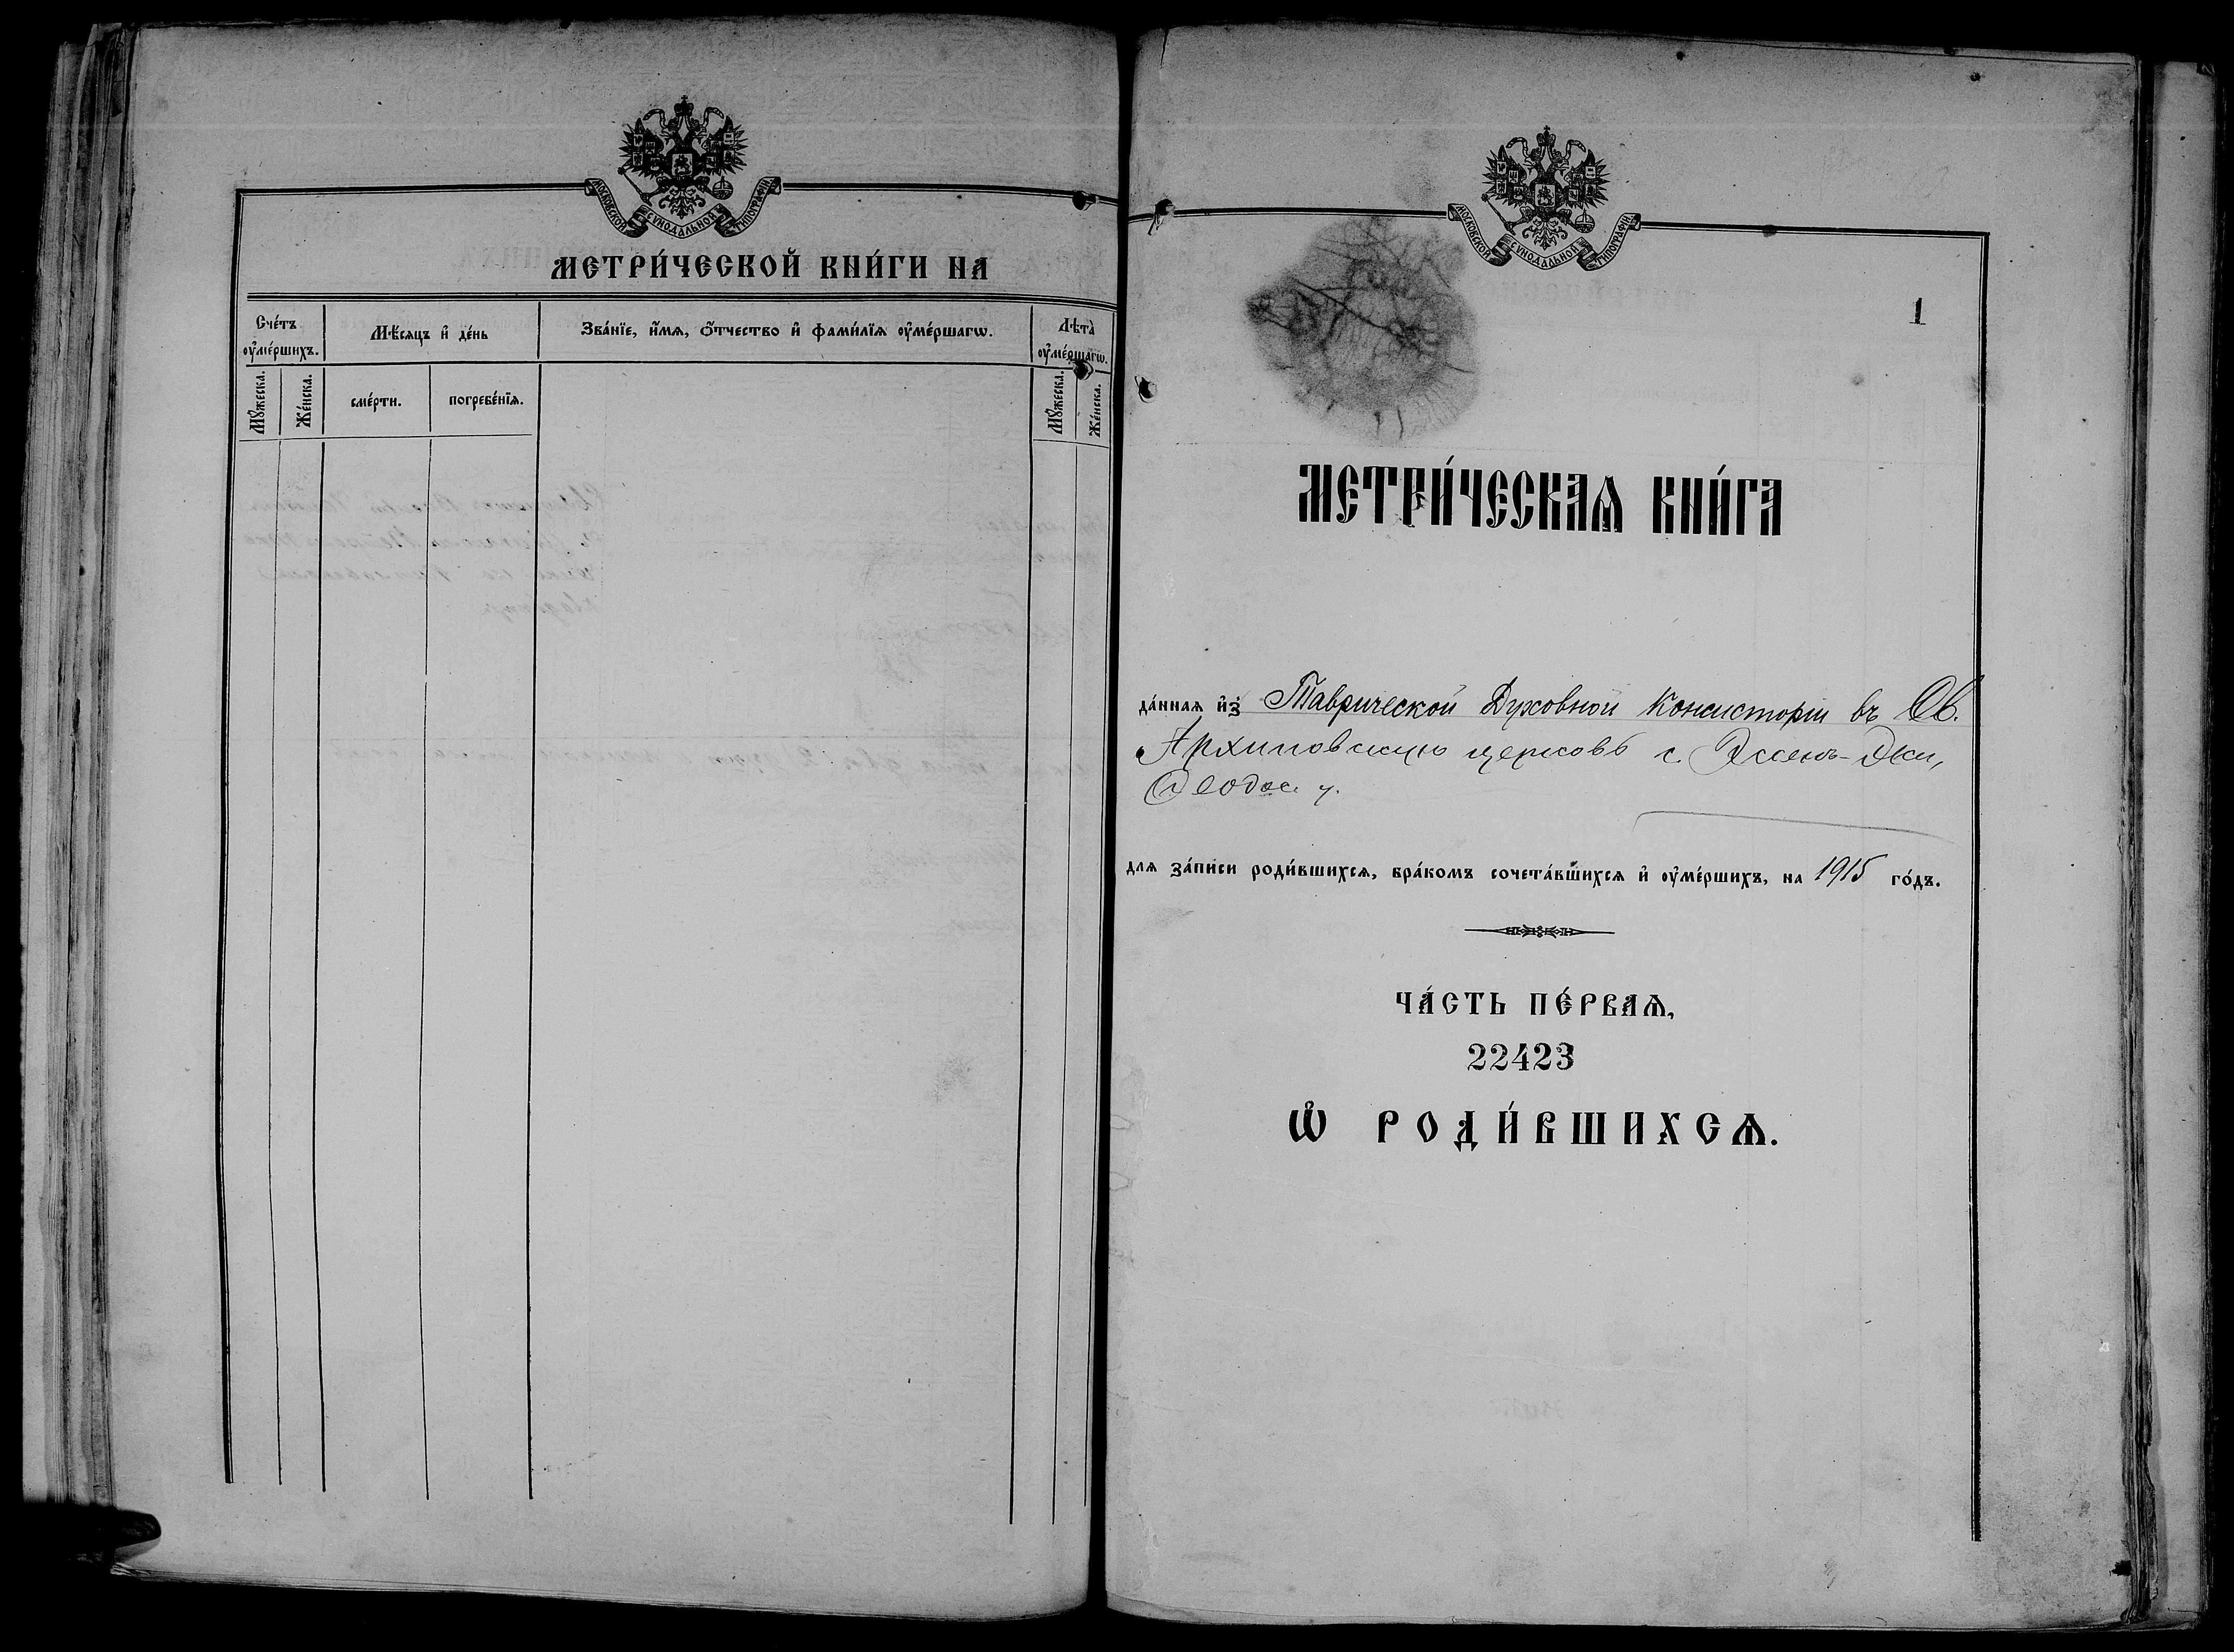 МОСКОВСКОЙ СѴНОДАЛЬНОЙ ТИПОГРАФІИ
МЕТРИ́ЧЕСКОЙ КНИ́ГИ НА
Сче́тъ оу҆ме́ршихъ.
Мѣ́сяцъ и҆ де́нь
Зва́нїе, и҆́мѧ, ѻ҆́тчество и҆ фами́лїѧ оу҆ме́ршагѡ.
Лѣта̀ оу҆ме́ршагѡ.
Мꙋ́жеска.
Же́нска.
сме́рти.
погребе́нїѧ.
Мꙋ́жеска.
Же́нска.
МОСКОВСКОЙ СѴНОДАЛЬНОЙ ТИПОГРАФІИ
1
МЕТРИ́ЧЕСКАѦ КНИ́ГА
да́ннаѧ и҆з̾ Таврической Духовной Консисторіи въ Св.
Архиповскую церковь с.
Ѳеодос. у.
длѧ за́писи роди́вшихсѧ, бра́комъ сочета́вшихсѧ и҆ оу҆ме́ршихъ, на 1915 го́дъ.
ЧА́СТЬ ПЕ́РВАѦ,
22423
Ѡ҆ РОДИ́ВШИХСѦ.